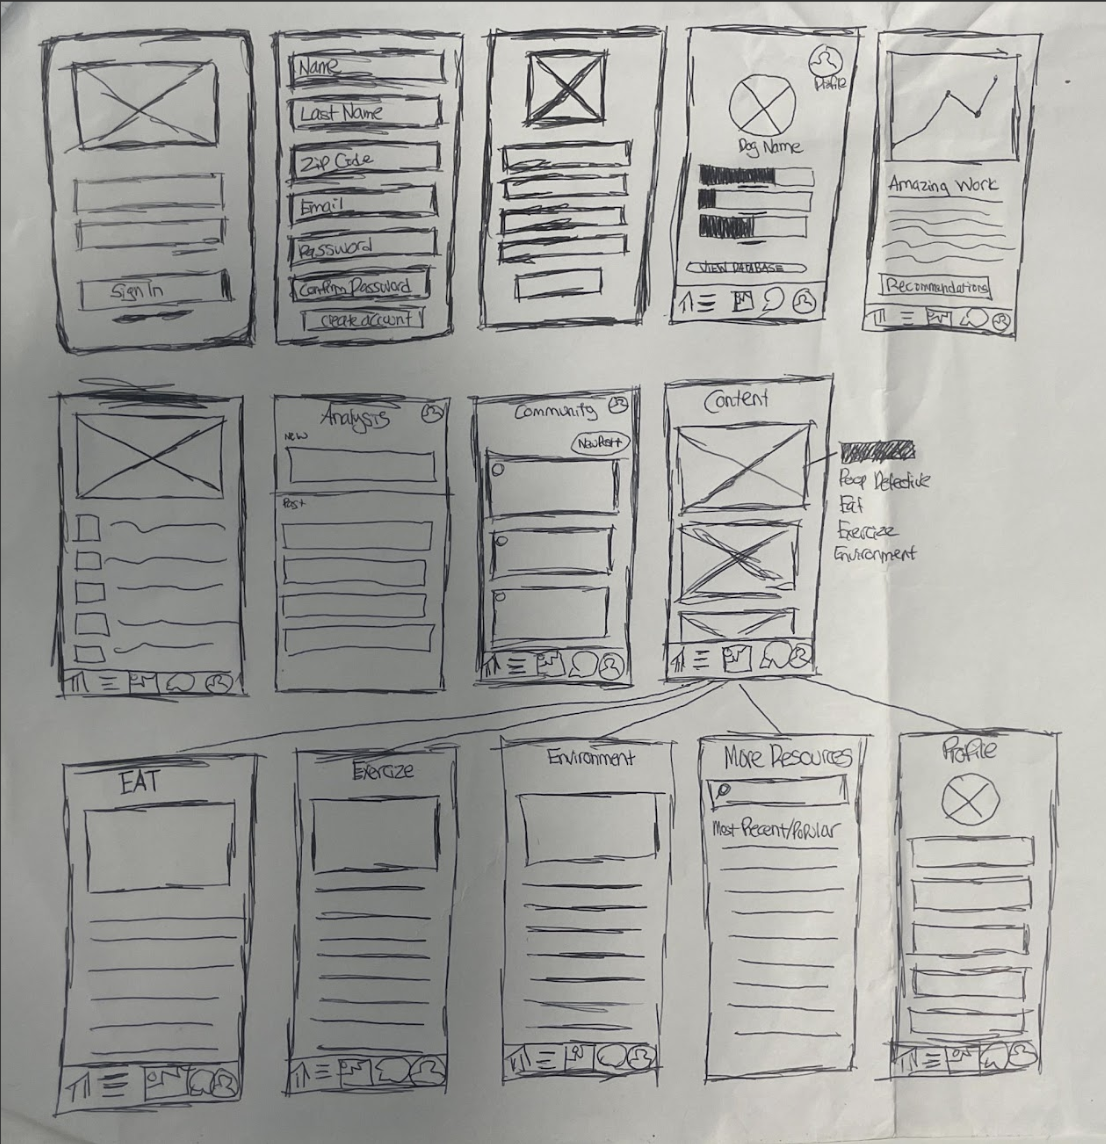 Sign In
Name
Last Name
Zip Code
Email
Password
Confirm Password
create account
Profile
Dog Name
VIEW DATABASE
Amazing Work
Recommendations
Analysis
New
Post
Community
New Post
Content
Poop Detective
Eat
Exercize
Environment
EAT
Exercize
Environment
More Resources
Most Recent/Popular
Profile